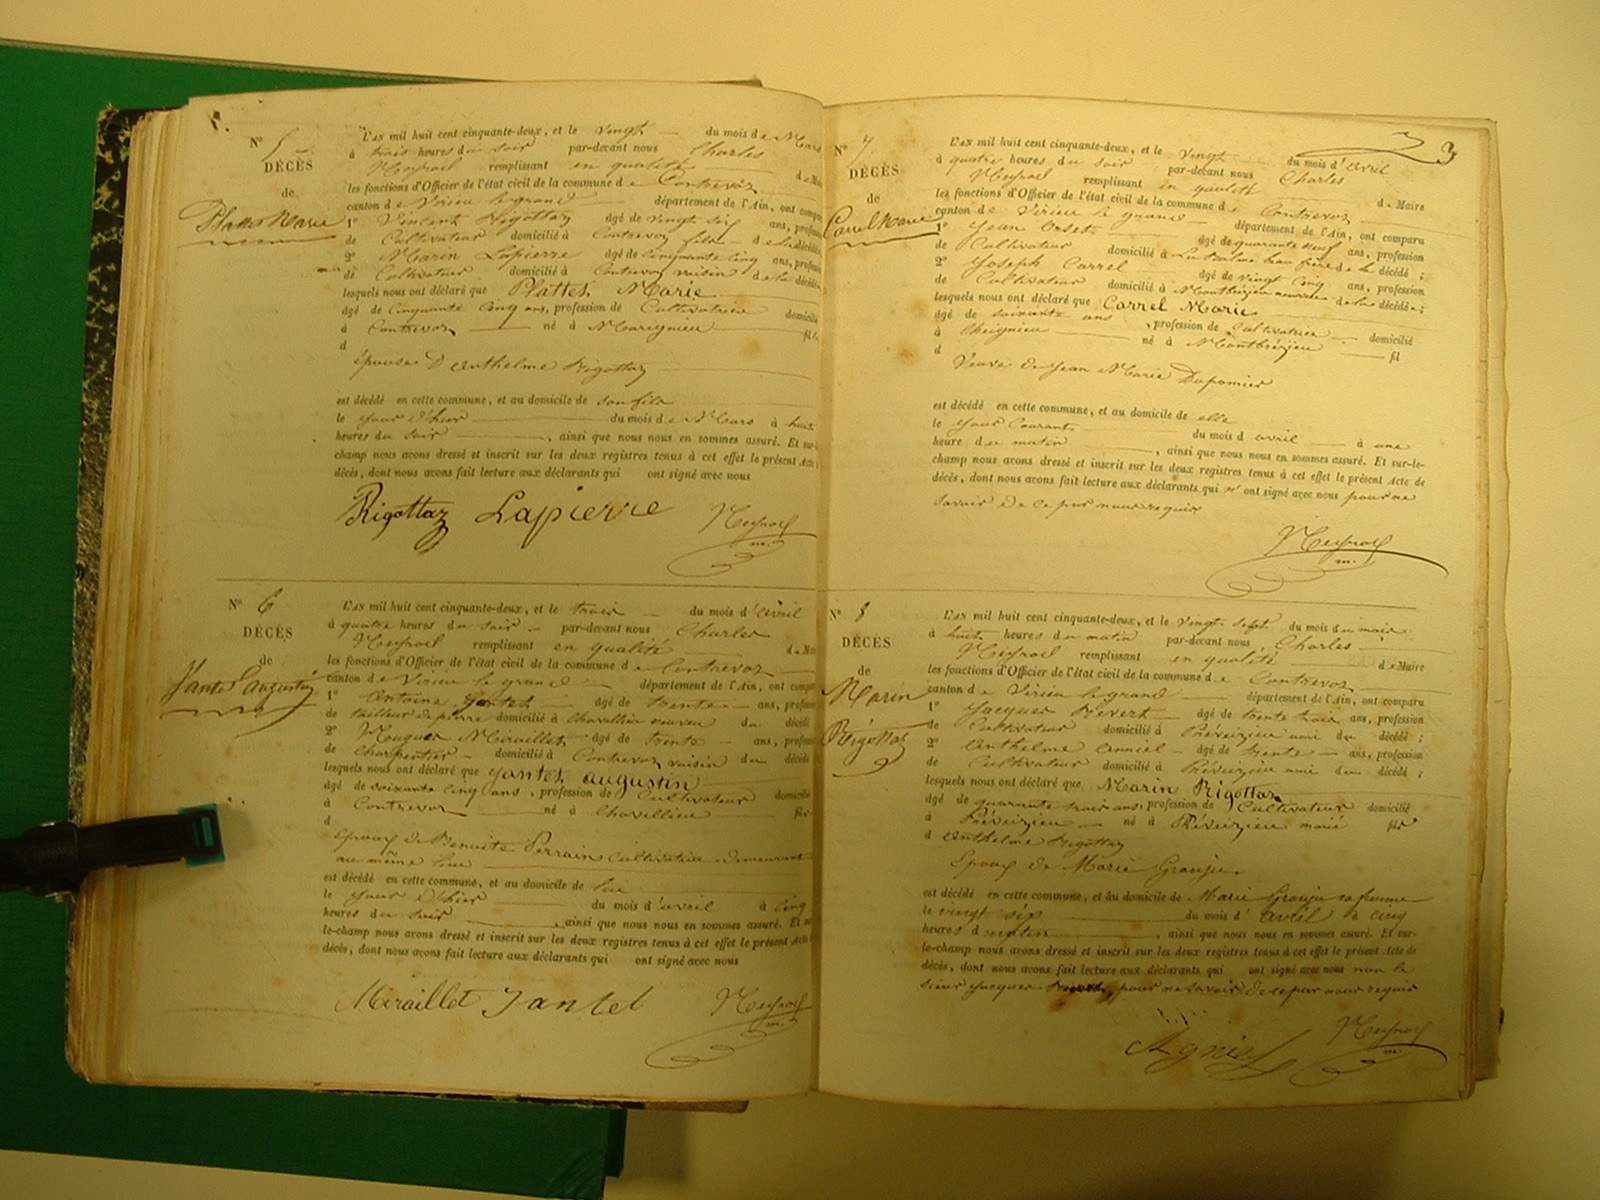 N° 5
DÉCÈS
de
Plattet Marie
L'AN mil huit cent cinquante-deux, et le vingt du mois de Mars
à trois heures du soir par-devant nous Charles
Meyraël remplissant en qualité de Maire
les fonctions d'Officier de l'état civil de la commune de Contrevoz
canton de Virieu le grand département de l'Ain, ont comparu
1° Vincent Rigottaz âgé de vingt six ans, profession
de Cultivateur domicilié à Contrevoz fils de la décédée
2° Marin Lapierre âgé de cinquante cinq ans, profession
de Cultivateur domicilié à Contrevoz voisin de la décédée
lesquels nous ont déclaré que Plattet Marie
âgé de cinquante cinq ans, profession de Cultivatrice domicilié
à Contrevoz né à Marignieu fil
d
épouse D'anthelme Rigottaz
est décédé en cette commune, et au domicile de son fils
le jour d'hier du mois de Mars à huit
heures du soir, ainsi que nous nous en sommes assuré. Et sur-le-
champ nous avons dressé et inscrit sur les deux registres tenus à cet effet le présent Acte
décès, dont nous avons fait lecture aux déclarants qui ont signé avec nous
Rigottaz Lapierre
N° 6
DÉCÈS
de
Jantet Augustin
L'AN mil huit cent cinquante-deux, et le trois du mois d'avril
à quatre heures du soir par-devant nous Charles
Meyraël remplissant en qualité de Maire
les fonctions d'Officier de l'état civil de la commune de Contrevoz
canton de Virieu le grand département de l'Ain, ont comparu
1° Antoine Jantet âgé de trente ans, profession
de tailleur de pierre domicilié à Chavillieu neveu du décédé
2° Miraillet âgé de trente ans, profession
de Charpentier domicilié à Contrevoz voisin du décédé
lesquels nous ont déclaré que Jantet augustin
âgé de soixante cinq ans, profession de Cultivateur domicilié
à Contrevoz né à Chavillieu fils
d
Epoux de Benoite Perrain cultivatrice demeurant
au même lieu
est décédé en cette commune, et au domicile de lui
le jour d'hier du mois d'avril à cinq
heures du soir, ainsi que nous nous en sommes assuré. Et sur-
le-champ nous avons dressé et inscrit sur les deux registres tenus à cet effet le présent Acte
décès, dont nous avons fait lecture aux déclarants qui ont signé avec nous
Miraillet Jantet
3
N° 7
DÉCÈS
de
Carrel Marie
L'AN mil huit cent cinquante-deux, et le vingt du mois d'avril
à quatre heures du soir par-devant nous Charles
Meyraël remplissant en qualité de Maire
les fonctions d'Officier de l'état civil de la commune de Contrevoz
canton de Virieu le grand département de l'Ain, ont comparu
1° Jean Orset âgé de quarante neuf ans, profession
de Cultivateur domicilié à La Balme beau frère de la décédé;
2° Joseph Carrel âgé de vingt cinq ans, profession
de Cultivateur domicilié à Montbrézieu neveu de la décédée;
lesquels nous ont déclaré que Carrel Marie
âgé de soixante ans, profession de Cultivatrice domicilié
à Cheignieu né à Montbrézieu fil
d
Veuve de Jean Marie
est décédé en cette commune, et au domicile de elle
le jour Courant du mois d avril à une
heure du matin, ainsi que nous nous en sommes assuré. Et sur-le-
champ nous avons dressé et inscrit sur les deux registres tenus à cet effet le présent Acte de
décès, dont nous avons fait lecture aux déclarants qui n'ont signé avec nous pour ne
savoir De ce par nous requis
N° 8
DÉCÈS
de
Marin
Rigottaz
L'AN mil huit cent cinquante-deux, et le vingt sept du mois du mais
à huit heures du matin par-devant nous Charles
Meyraël remplissant en qualité de Maire
les fonctions d'Officier de l'état civil de la commune de Contrevoz
canton de Virieu le grand département de l'Ain, ont comparu
1° Jacques Revert âgé de trente trois ans, profession
de Cultivateur domicilié à Préveizieu ami du décédé;
2° Anthelme âgé de trente ans, profession
de Cultivateur domicilié à Préveizieu ami du décédé;
lesquels nous ont déclaré que Marin Rigottaz
âgé de quarante trois ans, profession de Cultivateur domicilié
à Préveizieu né à Préveizieu marié fils
d anthelme Rigottaz
Epoux de Marie Granju
est décédé en cette commune, et au domicile de Marie Granju sa femme
le vingt six du mois d'avril à cinq
heures d matin, ainsi que nous nous en sommes assuré. Et sur-
le-champ nous avons dressé et inscrit sur les deux registres tenus à cet effet le présent Acte de
décès, dont nous avons fait lecture aux déclarants qui ont signé avec nous non le
sieur Jacques pour ne savoir De ce par nous requis